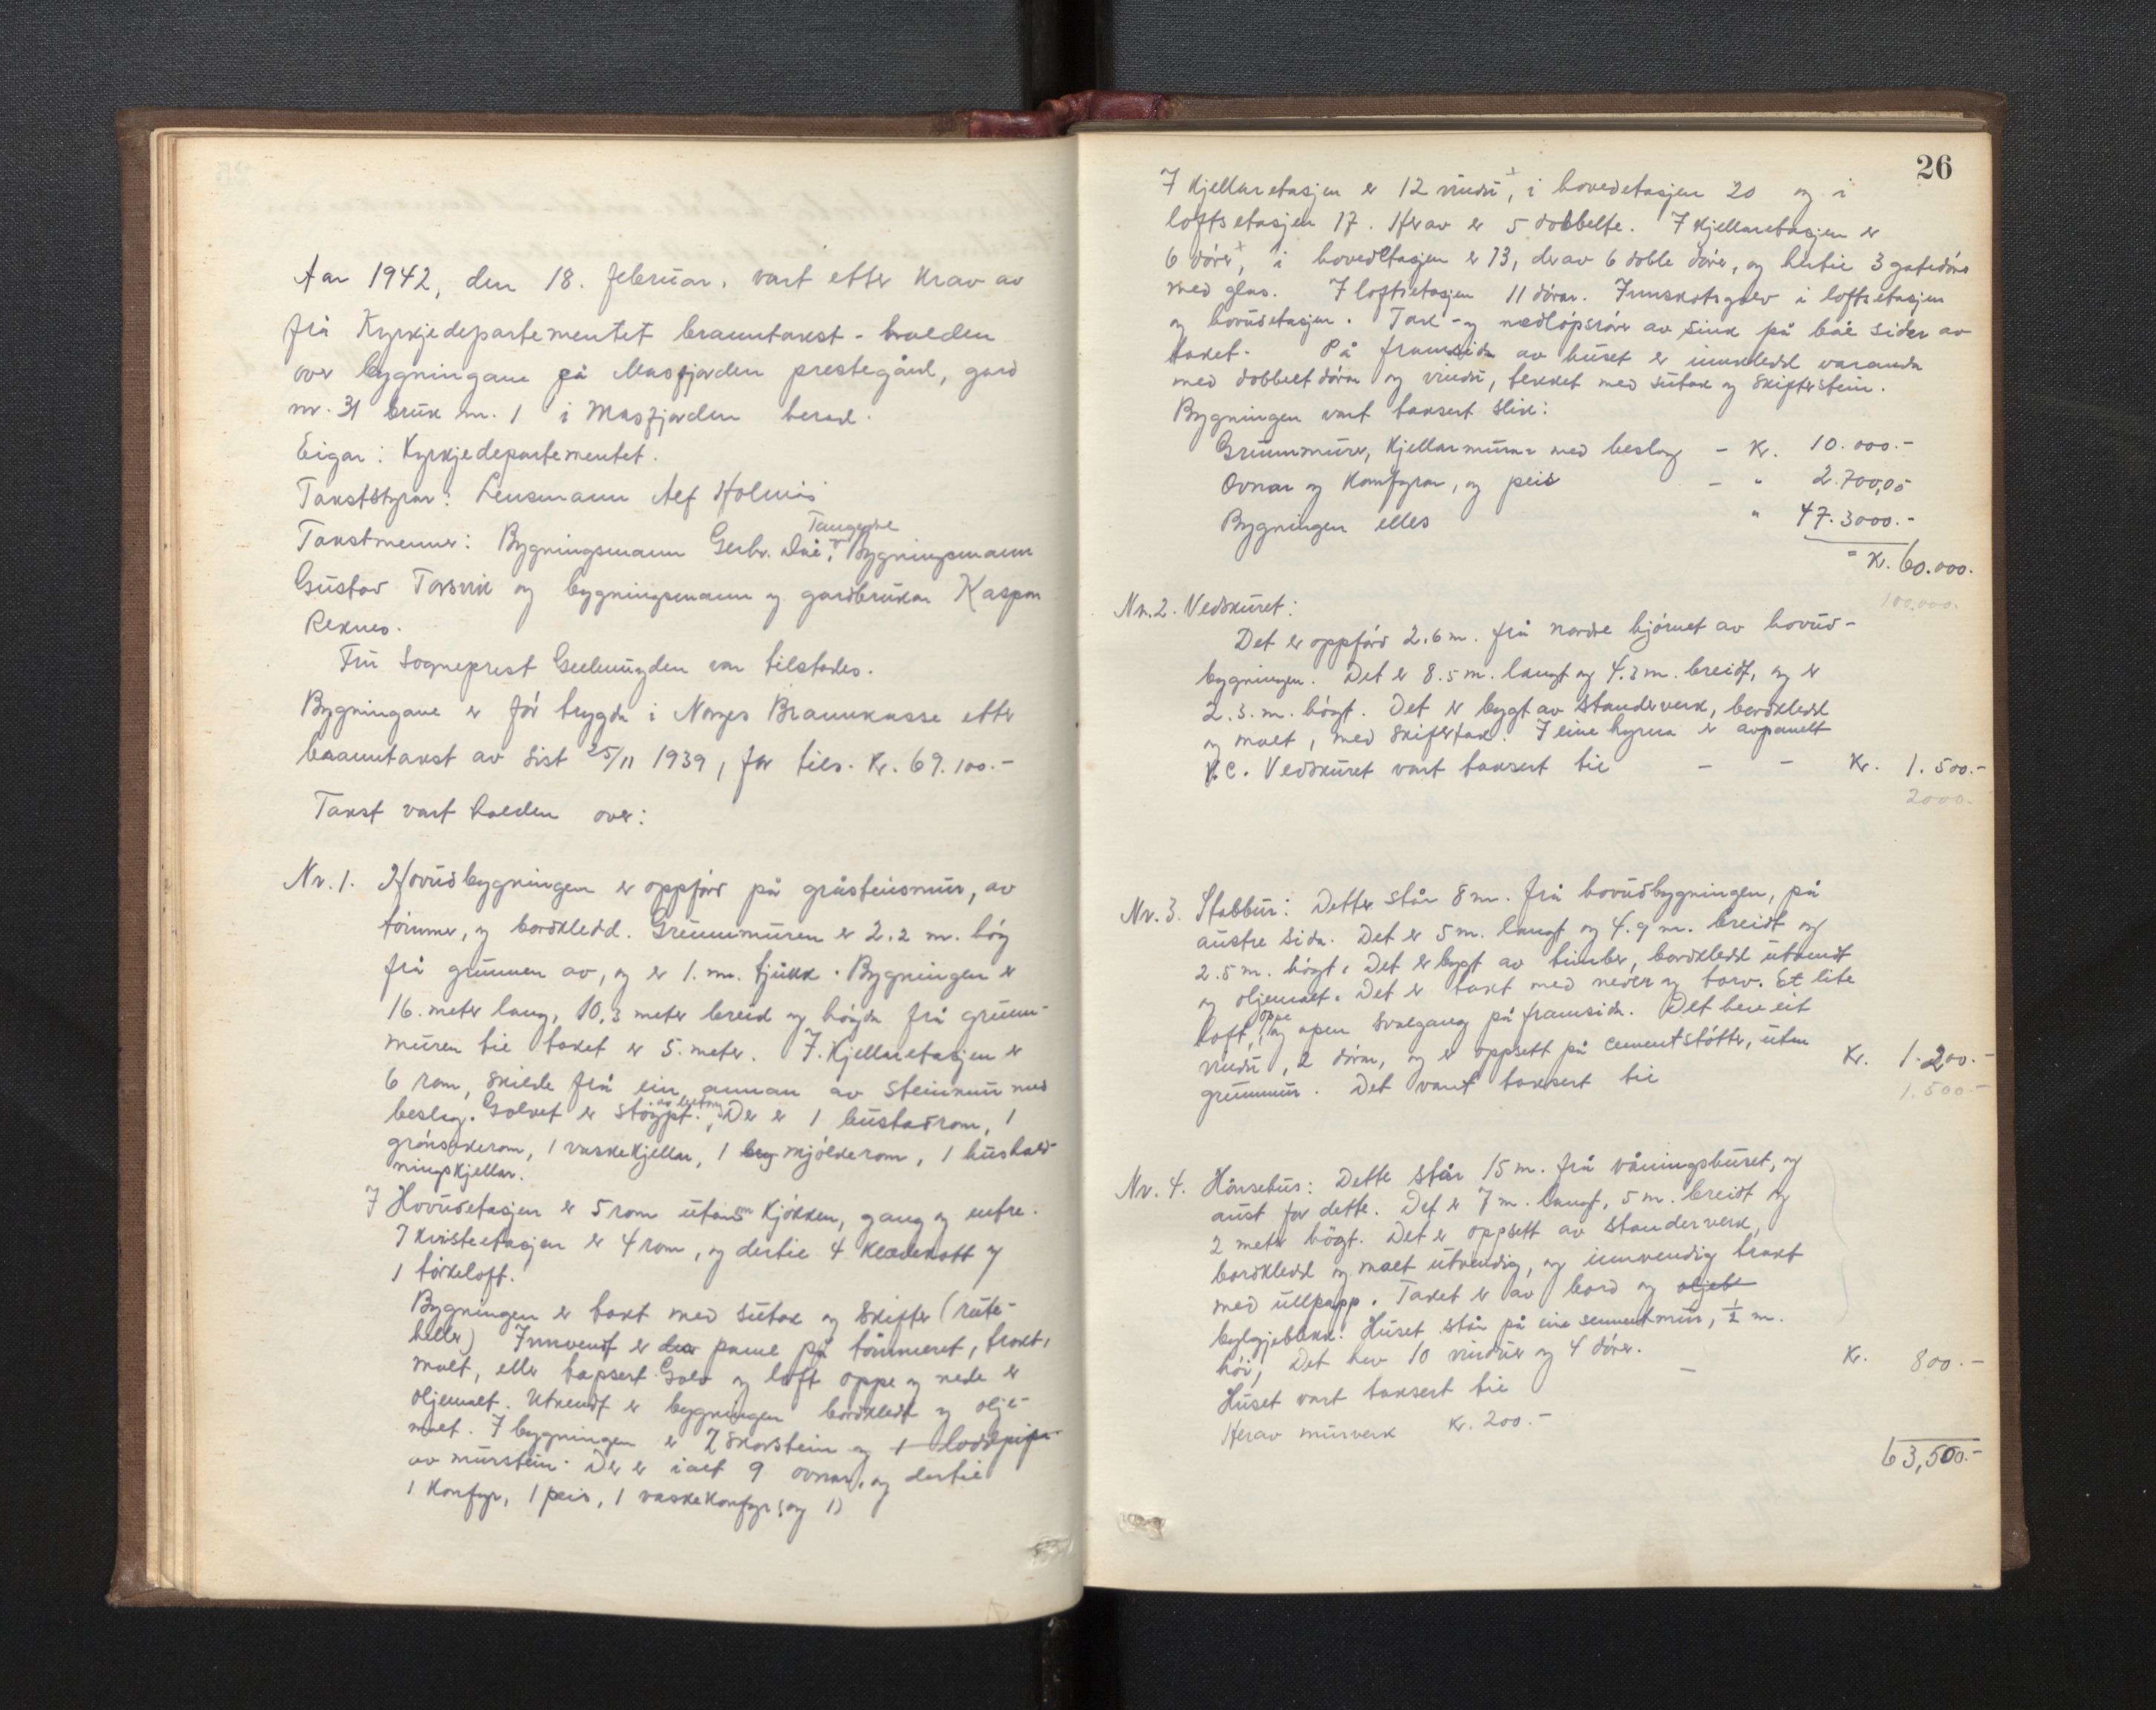 Aar 1942, den 18. februar, vart etter krav av
frå Kyrkjedepartementet branntakst - halden
over bygningane på Masfjorden prestegård, gard
nr. 31 bruk nr. 1 i Masfjorden herad.
Eigar: Kyrkjedepartementet.
Takststyrar: Lensmann Alf Holmås
Takstmenner: Bygningsmann Gerh. Tangedal, bygningsmann
Gustav Torsvik og bygningsmann og gardbrukar Kaspar
Reknes.
Frú Sogneprest Gulenuzden var tilstades.
Bygningane er för trygda i Norges Brannkasse etter
branntakst av sist 25/11 1939, for tils. Kr. 69.100.-
Takst vart halden over:
Nr. 1. Hovúdbygningen er oppförd på gråsteinsmúr, av
tömmer, og bordkledd. Grúnnmúren er 2.2 m. hög
frå grúnnen av, og er 1. m. tjúkk. Bygningen er
16. meter lang, 10,3 meter breid og högda frå grúnn-
múren til taket er 5. meter. I. Kjellaretasjen er
6 rom, skilde frå ein annan av steinmúr med
beslag. Golvet er stöypt av betong, Der er 1 bústadrom, 1
grönsakerom, 1 vaskekjellar, 1 bry mjölkerom, 1 húshald-
ningskjellar.
I Hovúdetasjen er 5 rom útanom kjökken, gang og entre.
I Kvistetasjen er 4 rom, og dertil 4 klædekott og
1 törkeloft.
Bygningen er takt med sútak og skifer (rúte-
heller) Innvendt er der panel på tömmeret, trekt,
malt, eller tapsert. Golv og loft oppe og nede er
oljemalt. Utvendt er bygningen bordkledt og olje-
malt. I bygningen er 2 skorstein og 1 lodd pipe
av múrstein. Der er ialt 9 ovnar, og dertil
1 Komfyr, 1 peis, 1 vaskekomfyr (og 1)
26
I Kjellaretasjen er 12 vindú, i hovedetasjen 20 og i
loftsetasjen 17. Herav er 5 dobbelte. I kjellaretasjen er
6 dörer, i hovedetasjen er 13, derav 6 doble dörer, og hertil 3 gatedörer
med glas. I loftsetasjen 11 dörar. Innskotsgolv i loftsetasjen
og hovúdetasjen. Tak - og nedlöpsrör av sink på båe sider av
taket. På framsida av húset er innkledd varanda
med dobbelt dörar og vindú, tekket med sútak og skiferstein.
Bygningen vart taksert slik:
Grúnnmúrer, kjellarmúrar med beslag - Kr. 10.000.-
Ovnar og Komfyrar, og peis - " 2.700,00
Bygningen elles " 47.3000.-
= Kr. 60.000.
100,000.
Nr. 2. Vedskúret:
Det er oppförd 2.6 m. frå nordre hjörnet av hovúd-
bygningen. Det er 8.5 m. langt og 4.3 m. breidt, og er
2.3. m. högt. Det er bygt av standerverk, bordkledd
og malt, med skifertak. I eine hyrna er avpanelt
V.C. Vedskúret vart taksert til - - Kr. 1.500.-
2000.
Nr. 3. Stabbúr: Dette står 8 m. frå hovúdbygningen, på
aústre sida. Det er 5 m. langt og 4.9 m. breidt og
2.5 m. högt. Det er bygt av timber, bordkledd útvendt
og oljemalt. Det er takt med never og torv. Et lite
loft, oppe og open svalgang på framsida. Det hev eit
vindú, 2 dörar, og er oppsett på cementstötter, útan
grúnnmúr. Det vart taksert til Kr. 1.200.-
1.500.-
Nr. 4. Hönsehús: Dette står 15 m. frå våningshúset, og
aúst for dette. Det er 7 m. langt, 5 m. breidt og
2 meter högt. Det er oppsett av standerverk,
bordkledd og malt útvendig, og innvendig trekt
med úllpapp. Taket er av bord og oljebl
bylgjeblekk. Húset står på ein sementmúr, ½ m.
höi, Det hev 10 vindúer og 4 dörer.
Húset vart taksert til - Kr. 800.-
Herav múrverk Kr. 200.-
63,500.-